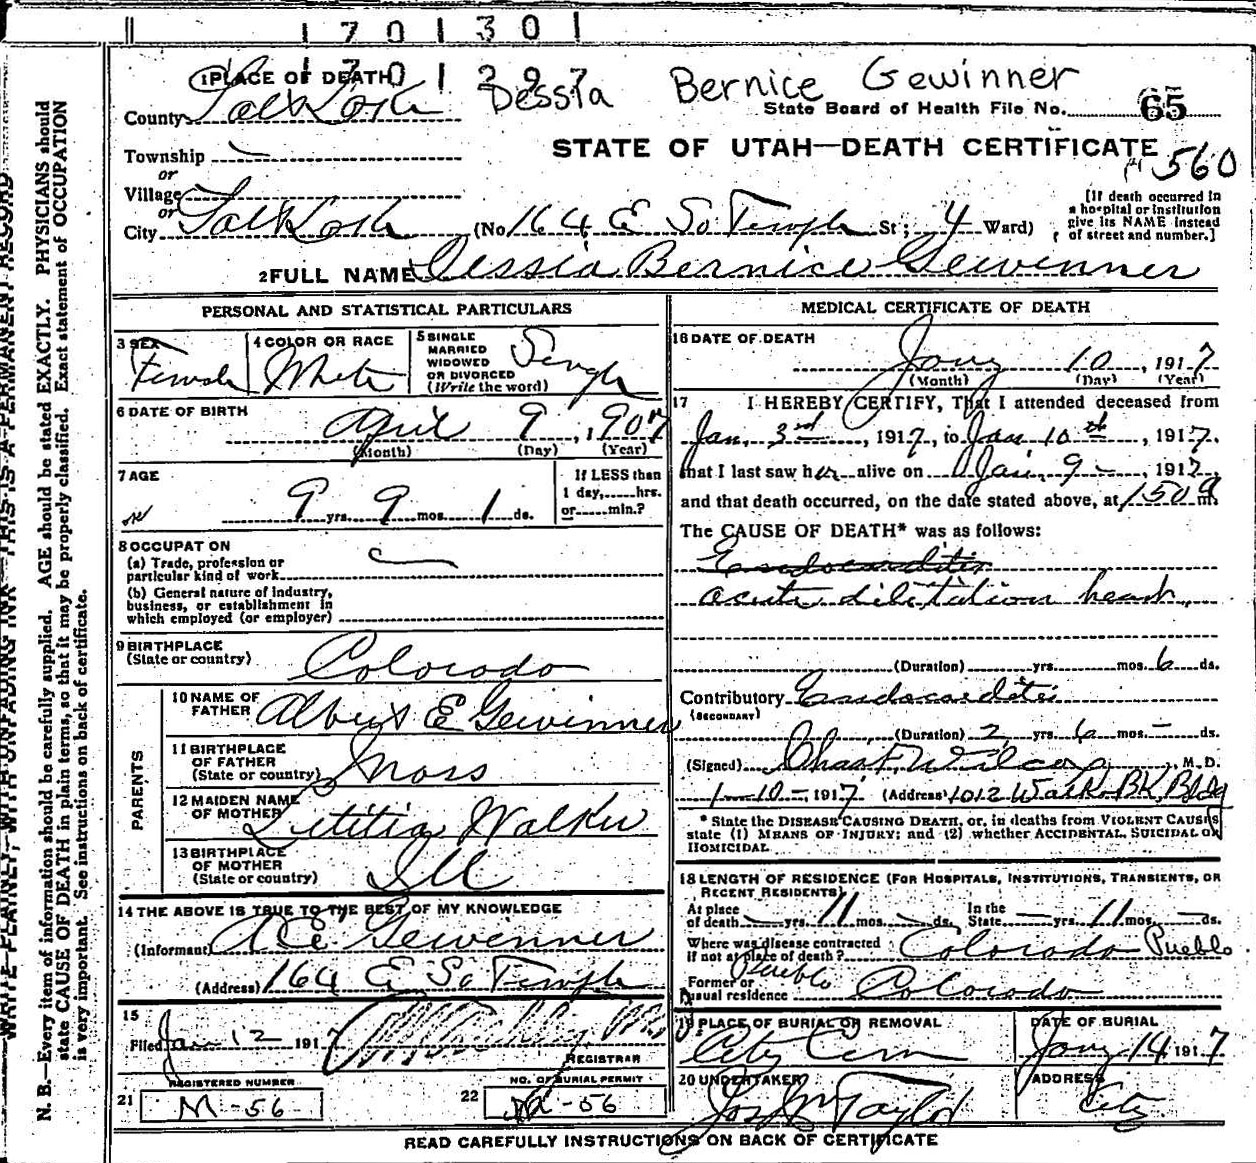 1 7 0 1 3 0 1
1 7 0 1 2 9 7
Dessia Bernice Gewinner
1 PLACE OF DEATH
County Salt Lake
State Board of Health File No. 65
Township —
STATE OF UTAH—DEATH CERTIFICATE
560
or
Village
or
City Salt Lake (No 164 E So Temple St; 4 Ward)
[If death occurred in
a hospital or institution
give its NAME instead
of street and number.]
2 FULL NAME Dessia Bernice Gewinner
PERSONAL AND STATISTICAL PARTICULARS
3 SEX
Female
4 COLOR OR RACE
White
5 SINGLE
MARRIED
WIDOWED
OR DIVORCED
(Write the word)
Single
6 DATE OF BIRTH
April 9, 1907
(Month) (Day) (Year)
7 AGE
9 yrs. 9 mos. 1 ds.
If LESS than
1 day,......hrs.
or......min.?
8 OCCUPATION
(a) Trade, profession or
particular kind of work
(b) General nature of industry,
business, or establishment in
which employed (or employer)
9 BIRTHPLACE
(State or country)
Colorado
PARENTS
10 NAME OF
FATHER
Albert E Gewinner
11 BIRTHPLACE
OF FATHER
(State or country)
Mass
12 MAIDEN NAME
OF MOTHER
Letitia Walker
13 BIRTHPLACE
OF MOTHER
(State or country)
Ill
14 THE ABOVE IS TRUE TO THE BEST OF MY KNOWLEDGE
(Informant) A E Gewinner
(Address) 164 E So Temple
15
Filed Jan 12 1917
REGISTRAR
REGISTERED NUMBER
21 M-56
NO. OF BURIAL PERMIT
22 M-56
MEDICAL CERTIFICATE OF DEATH
16 DATE OF DEATH
Jany 10, 1917
(Month) (Day) (Year)
17 I HEREBY CERTIFY, That I attended deceased from
Jan. 3rd, 1917, to Jan 10th, 1917.
that I last saw her alive on Jan. 9 -, 1917,
and that death occurred, on the date stated above, at 150 a m.
The CAUSE OF DEATH* was as follows:
Endocarditis
acute dilitation heart
(Duration) yrs. mos. 6 ds.
Contributory Endocarditis
(SECONDARY)
(Duration) 2 yrs. 6 mos. — ds.
(Signed) Chas F. Wilcox, M. D.
1-10-, 1917 (Address) 1012 Walker BK Bldg
* State the DISEASE CAUSING DEATH, or, in deaths from VIOLENT CAUSES
state (1) MEANS OF INJURY; and (2) whether ACCIDENTAL, SUICIDAL OR
HOMICIDAL.
18 LENGTH OF RESIDENCE (FOR HOSPITALS, INSTITUTIONS, TRANSIENTS, OR
RECENT RESIDENTS)
At place
of death — yrs. 11 mos. — ds.
In the
State — yrs. 11 mos. — ds.
Where was disease contracted
if not at place of death? Colorado Pueblo
Former or
usual residence Pueblo Colorado
19 PLACE OF BURIAL OR REMOVAL
City Cem
DATE OF BURIAL
Jany 14 1917
20 UNDERTAKER
Jos Wm Taylor
ADDRESS
City
READ CAREFULLY INSTRUCTIONS ON BACK OF CERTIFICATE
WRITE PLAINLY, WITH UNFADING INK—THIS IS A PERMANENT RECORD
N. B.—Every item of information should be carefully supplied. AGE should be stated EXACTLY. PHYSICIANS should
state CAUSE OF DEATH in plain terms, so that it may be properly classified. Exact statement of OCCUPATION
is very important. See instructions on back of certificate.